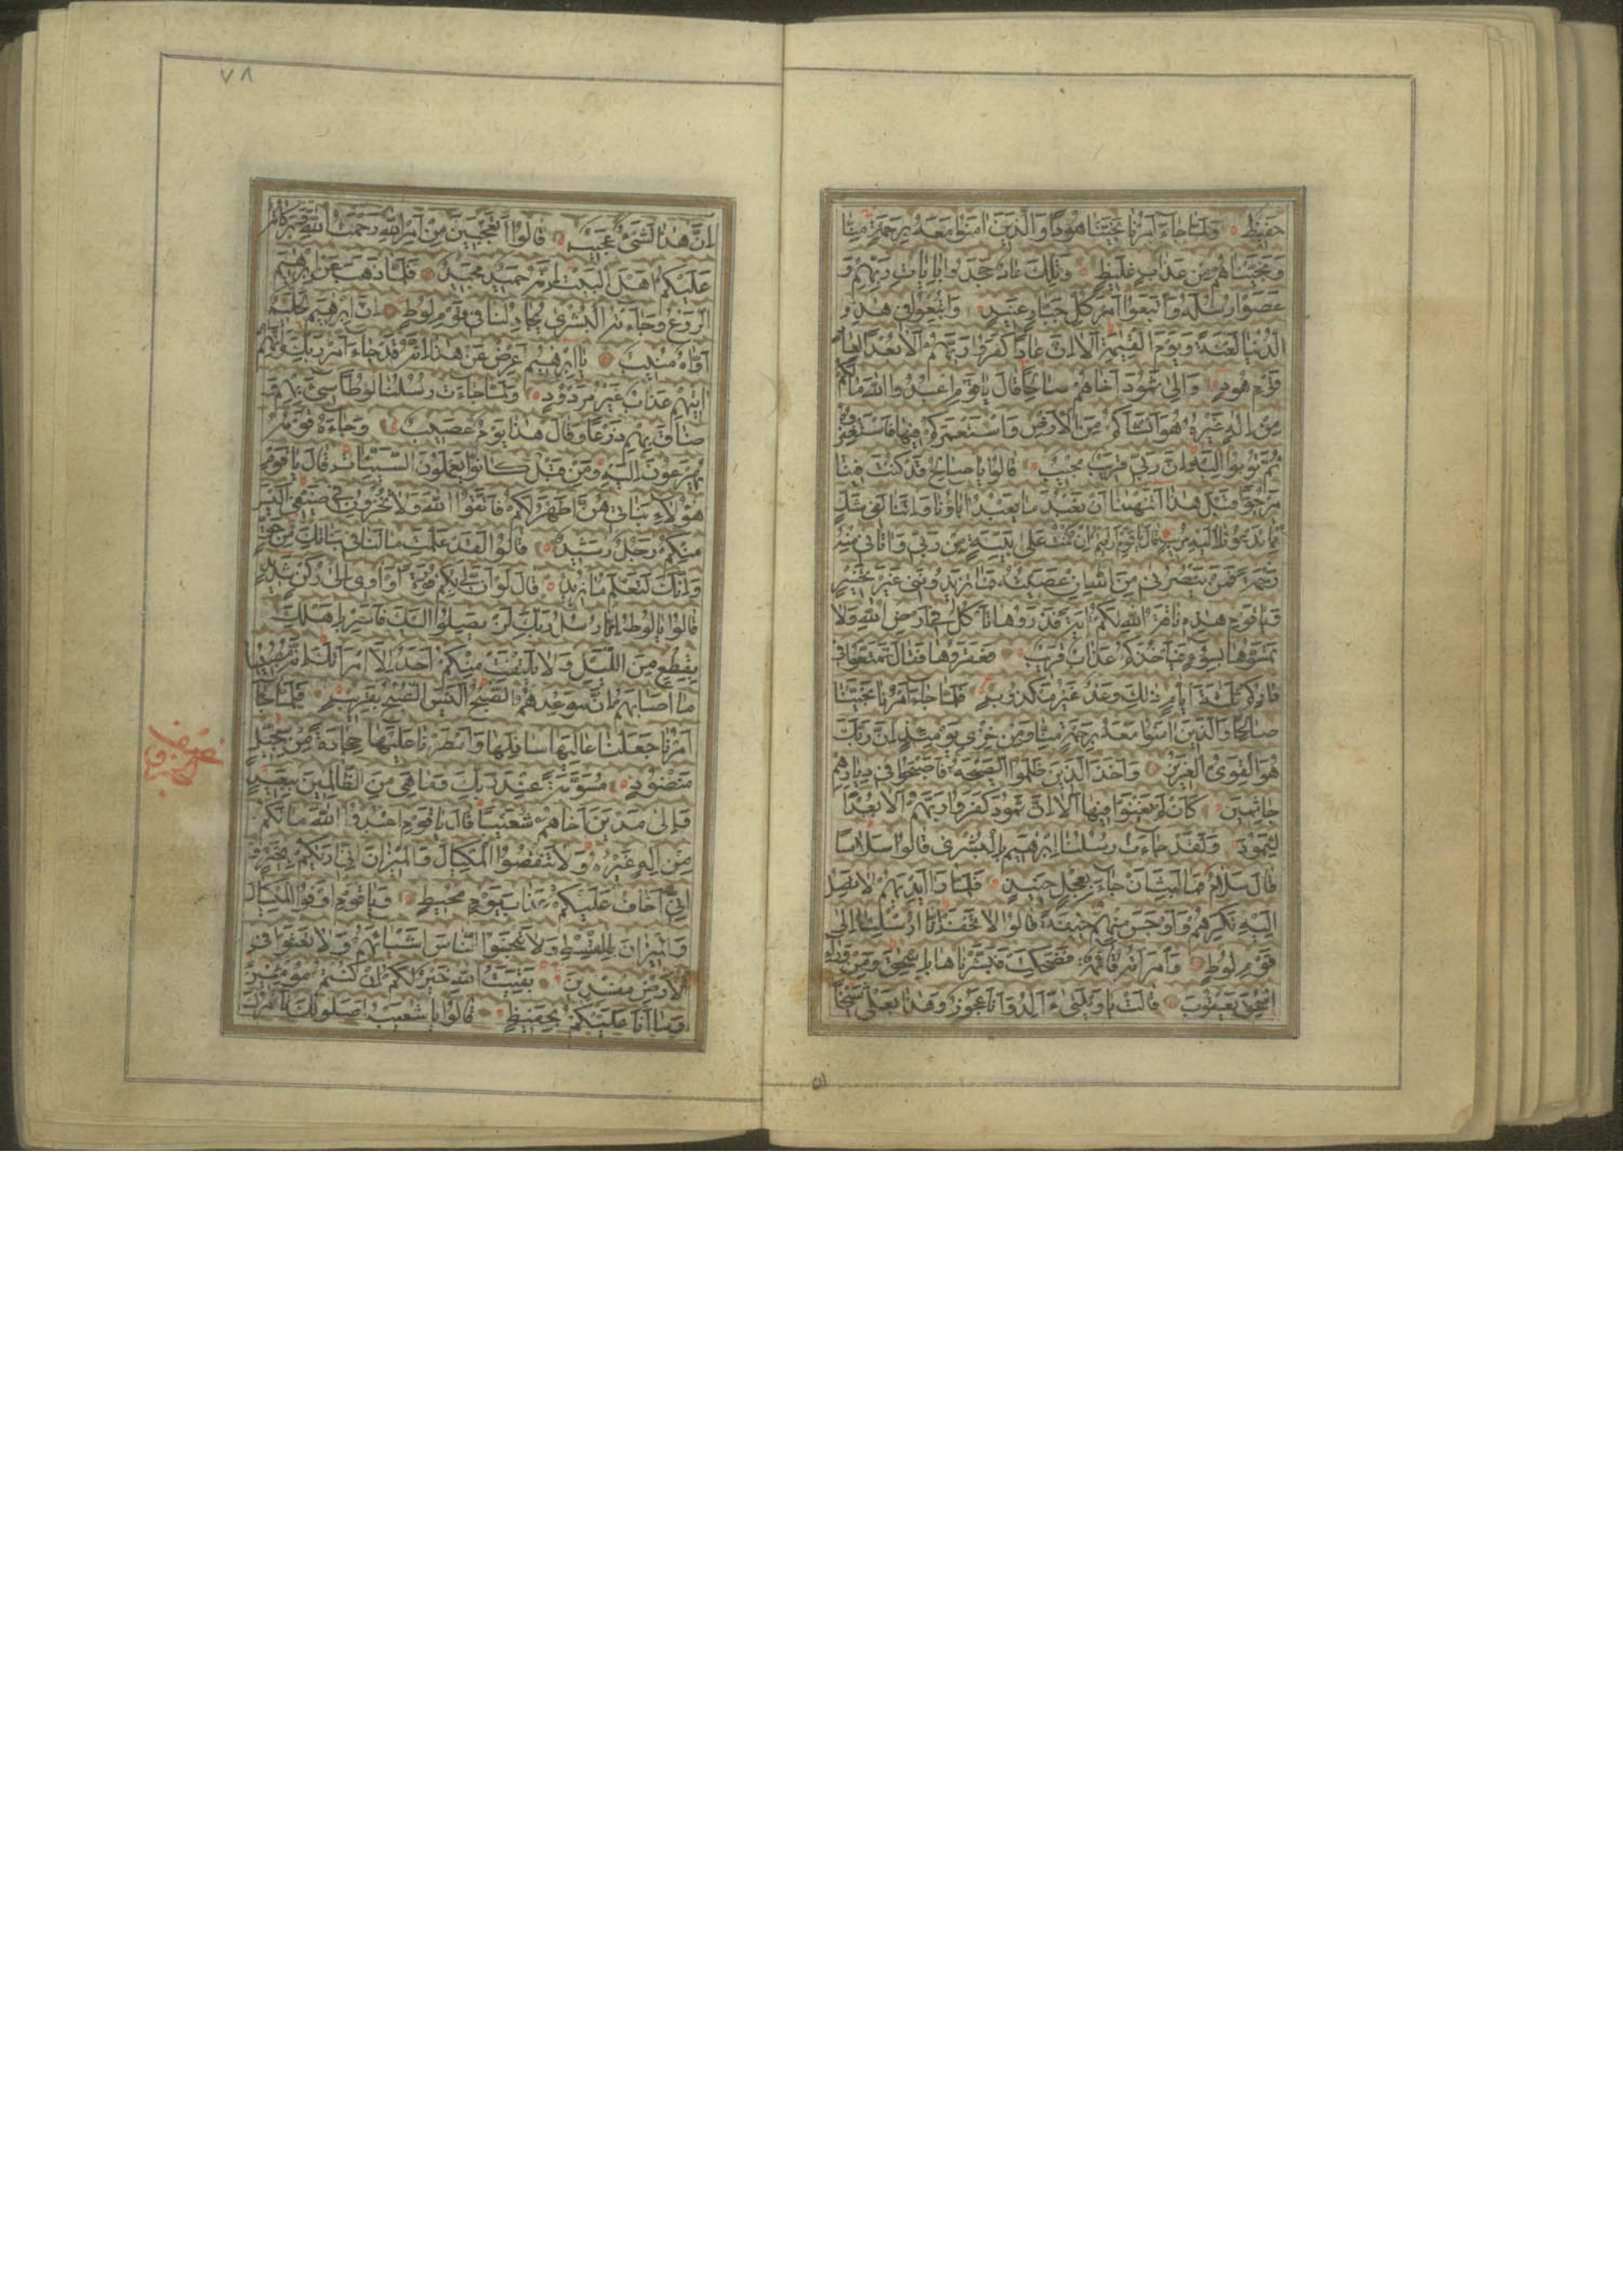 حَفِيظٌ وَلَمَّا جَاءَ اَمْرُنَا نَجَّيْنَا هُودًا وَالَّذِينَ اٰمَنُوا مَعَهُ بِرَحْمَةٍ مِنَّا
وَنَجَّيْنَاهُمْ مِنْ عَذَابٍ غَلِيظٍ وَتِلْكَ عَادٌ جَحَدُوا بِاٰيَاتِ رَبِّهِمْ وَ
عَصَوْا رُسُلَهُ وَاتَّبَعُوا اَمْرَ كُلِّ جَبَّارٍ عَنِيدٍ وَاُتْبِعُوا فِي هٰذِهِ
الدُّنْيَا لَعْنَةً وَيَوْمَ الْقِيٰمَةِ اَلَا اِنَّ عَادًا كَفَرُوا رَبَّهُمْ اَلَا بُعْدًا لِعَادٍ
قَوْمِ هُودٍ وَاِلٰى ثَمُودَ اَخَاهُمْ صَالِحًا قَالَ يَا قَوْمِ اعْبُدُوا اللّٰهَ مَا لَكُمْ
مِنْ اِلٰهٍ غَيْرُهُ هُوَ اَنْشَاَكُمْ مِنَ الْاَرْضِ وَاسْتَعْمَرَكُمْ فِيهَا فَاسْتَغْفِرُوهُ
ثُمَّ تُوبُوا اِلَيْهِ اِنَّ رَبِّي قَرِيبٌ مُجِيبٌ قَالُوا يَا صَالِحُ قَدْ كُنْتَ فِينَا
مَرْجُوًّا قَبْلَ هٰذَا اَتَنْهٰينَا اَنْ نَعْبُدَ مَا يَعْبُدُ اٰبَاؤُنَا وَاِنَّنَا لَفِي شَكٍّ
مِمَّا تَدْعُونَا اِلَيْهِ مُرِيبٍ قَالَ يَا قَوْمِ اَرَاَيْتُمْ اِنْ كُنْتُ عَلٰى بَيِّنَةٍ مِنْ رَبِّي وَاٰتَانِي مِنْهُ
رَحْمَةً فَمَنْ يَنْصُرُنِي مِنَ اللّٰهِ اِنْ عَصَيْتُهُ فَمَا تَزِيدُونَنِي غَيْرَ تَخْسِيرٍ
وَيَا قَوْمِ هٰذِهِ نَاقَةُ اللّٰهِ لَكُمْ اٰيَةً فَذَرُوهَا تَاْكُلْ فِي اَرْضِ اللّٰهِ وَلَا
تَمَسُّوهَا بِسُوءٍ فَيَاْخُذَكُمْ عَذَابٌ قَرِيبٌ فَعَقَرُوهَا فَقَالَ تَمَتَّعُوا فِي
دَارِكُمْ ثَلٰثَةَ اَيَّامٍ ذٰلِكَ وَعْدٌ غَيْرُ مَكْذُوبٍ فَلَمَّا جَاءَ اَمْرُنَا نَجَّيْنَا
صَالِحًا وَالَّذِينَ اٰمَنُوا مَعَهُ بِرَحْمَةٍ مِنَّا وَمِنْ خِزْيِ يَوْمِئِذٍ اِنَّ رَبَّكَ
هُوَ الْقَوِيُّ الْعَزِيزُ وَاَخَذَ الَّذِينَ ظَلَمُوا الصَّيْحَةُ فَاَصْبَحُوا فِي دِيَارِهِمْ
جَاثِمِينَ كَاَنْ لَمْ يَغْنَوْا فِيهَا اَلَا اِنَّ ثَمُودَ كَفَرُوا رَبَّهُمْ اَلَا بُعْدًا
لِثَمُودَ وَلَقَدْ جَاءَتْ رُسُلُنَا اِبْرٰهِيمَ بِالْبُشْرٰى قَالُوا سَلَامًا
قَالَ سَلَامٌ فَمَا لَبِثَ اَنْ جَاءَ بِعِجْلٍ حَنِيذٍ فَلَمَّا رَاٰ اَيْدِيَهُمْ لَا تَصِلُ
اِلَيْهِ نَكِرَهُمْ وَاَوْجَسَ مِنْهُمْ خِيفَةً قَالُوا لَا تَخَفْ اِنَّا اُرْسِلْنَا اِلٰى
قَوْمِ لُوطٍ وَامْرَاَتُهُ قَائِمَةٌ فَضَحِكَتْ فَبَشَّرْنَاهَا بِاِسْحٰقَ وَمِنْ وَرَاءِ
اِسْحٰقَ يَعْقُوبَ قَالَتْ يَا وَيْلَتٰى ءَاَلِدُ وَاَنَا عَجُوزٌ وَهٰذَا بَعْلِي شَيْخًا
ان
٧٨
اِنَّ هٰذَا لَشَيْءٌ عَجِيبٌ قَالُوا اَتَعْجَبِينَ مِنْ اَمْرِ اللّٰهِ رَحْمَتُ اللّٰهِ وَبَرَكَاتُهُ
عَلَيْكُمْ اَهْلَ الْبَيْتِ اِنَّهُ حَمِيدٌ مَجِيدٌ فَلَمَّا ذَهَبَ عَنْ اِبْرٰهِيمَ
الرَّوْعُ وَجَاءَتْهُ الْبُشْرٰى يُجَادِلُنَا فِي قَوْمِ لُوطٍ اِنَّ اِبْرٰهِيمَ لَحَلِيمٌ
اَوَّاهٌ مُنِيبٌ يَا اِبْرٰهِيمُ اَعْرِضْ عَنْ هٰذَا اِنَّهُ قَدْ جَاءَ اَمْرُ رَبِّكَ وَاِنَّهُمْ
اٰتِيهِمْ عَذَابٌ غَيْرُ مَرْدُودٍ وَلَمَّا جَاءَتْ رُسُلُنَا لُوطًا سِيءَ بِهِمْ وَ
ضَاقَ بِهِمْ ذَرْعًا وَقَالَ هٰذَا يَوْمٌ عَصِيبٌ وَجَاءَهُ قَوْمُهُ
يُهْرَعُونَ اِلَيْهِ وَمِنْ قَبْلُ كَانُوا يَعْمَلُونَ السَّيِّئَاتِ قَالَ يَا قَوْمِ
هٰؤُلَاءِ بَنَاتِي هُنَّ اَطْهَرُ لَكُمْ فَاتَّقُوا اللّٰهَ وَلَا تُخْزُونِ فِي ضَيْفِي اَلَيْسَ
مِنْكُمْ رَجُلٌ رَشِيدٌ قَالُوا لَقَدْ عَلِمْتَ مَا لَنَا فِي بَنَاتِكَ مِنْ حَقٍّ
وَاِنَّكَ لَتَعْلَمُ مَا نُرِيدُ قَالَ لَوْ اَنَّ لِي بِكُمْ قُوَّةً اَوْ اٰوِي اِلٰى رُكْنٍ شَدِيدٍ
قَالُوا يَا لُوطُ اِنَّا رُسُلُ رَبِّكَ لَنْ يَصِلُوا اِلَيْكَ فَاَسْرِ بِاَهْلِكَ
بِقِطْعٍ مِنَ اللَّيْلِ وَلَا يَلْتَفِتْ مِنْكُمْ اَحَدٌ اِلَّا امْرَاَتَكَ اِنَّهُ مُصِيبُهَا
مَا اَصَابَهُمْ اِنَّ مَوْعِدَهُمُ الصُّبْحُ اَلَيْسَ الصُّبْحُ بِقَرِيبٍ فَلَمَّا جَاءَ
اَمْرُنَا جَعَلْنَا عَالِيَهَا سَافِلَهَا وَاَمْطَرْنَا عَلَيْهَا حِجَارَةً مِنْ سِجِّيلٍ
مَنْضُودٍ مُسَوَّمَةً عِنْدَ رَبِّكَ وَمَا هِيَ مِنَ الظَّالِمِينَ بِبَعِيدٍ
وَاِلٰى مَدْيَنَ اَخَاهُمْ شُعَيْبًا قَالَ يَا قَوْمِ اعْبُدُوا اللّٰهَ مَا لَكُمْ
مِنْ اِلٰهٍ غَيْرُهُ وَلَا تَنْقُصُوا الْمِكْيَالَ وَالْمِيزَانَ اِنِّي اَرٰيكُمْ بِخَيْرٍ وَ
اِنِّي اَخَافُ عَلَيْكُمْ عَذَابَ يَوْمٍ مُحِيطٍ وَيَا قَوْمِ اَوْفُوا الْمِكْيَالَ
وَالْمِيزَانَ بِالْقِسْطِ وَلَا تَبْخَسُوا النَّاسَ اَشْيَاءَهُمْ وَلَا تَعْثَوْا فِي
الْاَرْضِ مُفْسِدِينَ بَقِيَّتُ اللّٰهِ خَيْرٌ لَكُمْ اِنْ كُنْتُمْ مُؤْمِنِينَ
وَمَا اَنَا عَلَيْكُمْ بِحَفِيظٍ قَالُوا يَا شُعَيْبُ اَصَلٰوتُكَ تَاْمُرُكَ